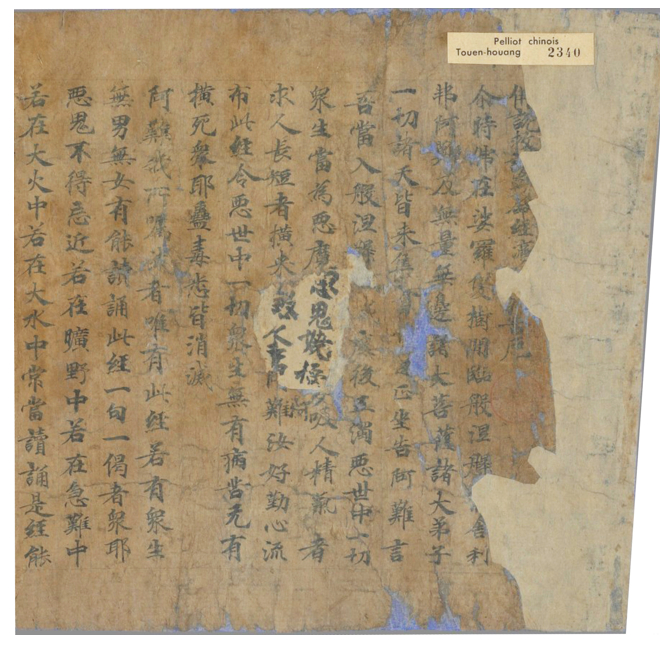 Pelliot chinois
Touen-houang 2340
佛說救護身命經
尒時佛在娑羅雙樹間臨般涅槃舍利
弗阿難及無量無邊諸大菩薩諸大弟子
一切諸天皆未正坐告阿難言
吾當入般涅槃後五濁惡世中一切
衆生當為惡魔惡鬼嬈吸人精氣者
求人長短者橫來殺人害難汝好勤心流
布此經令悪世中一切衆生無有病苦无有
橫死衆耶蠱毒悉皆消滅
阿難我所囑者唯有此經若有衆生
無男無女有能讀誦此經一句一偈者衆耶
悪鬼不得忌近若在曠野中若在急難中
若在大火中若在大水中常當讀誦是經能